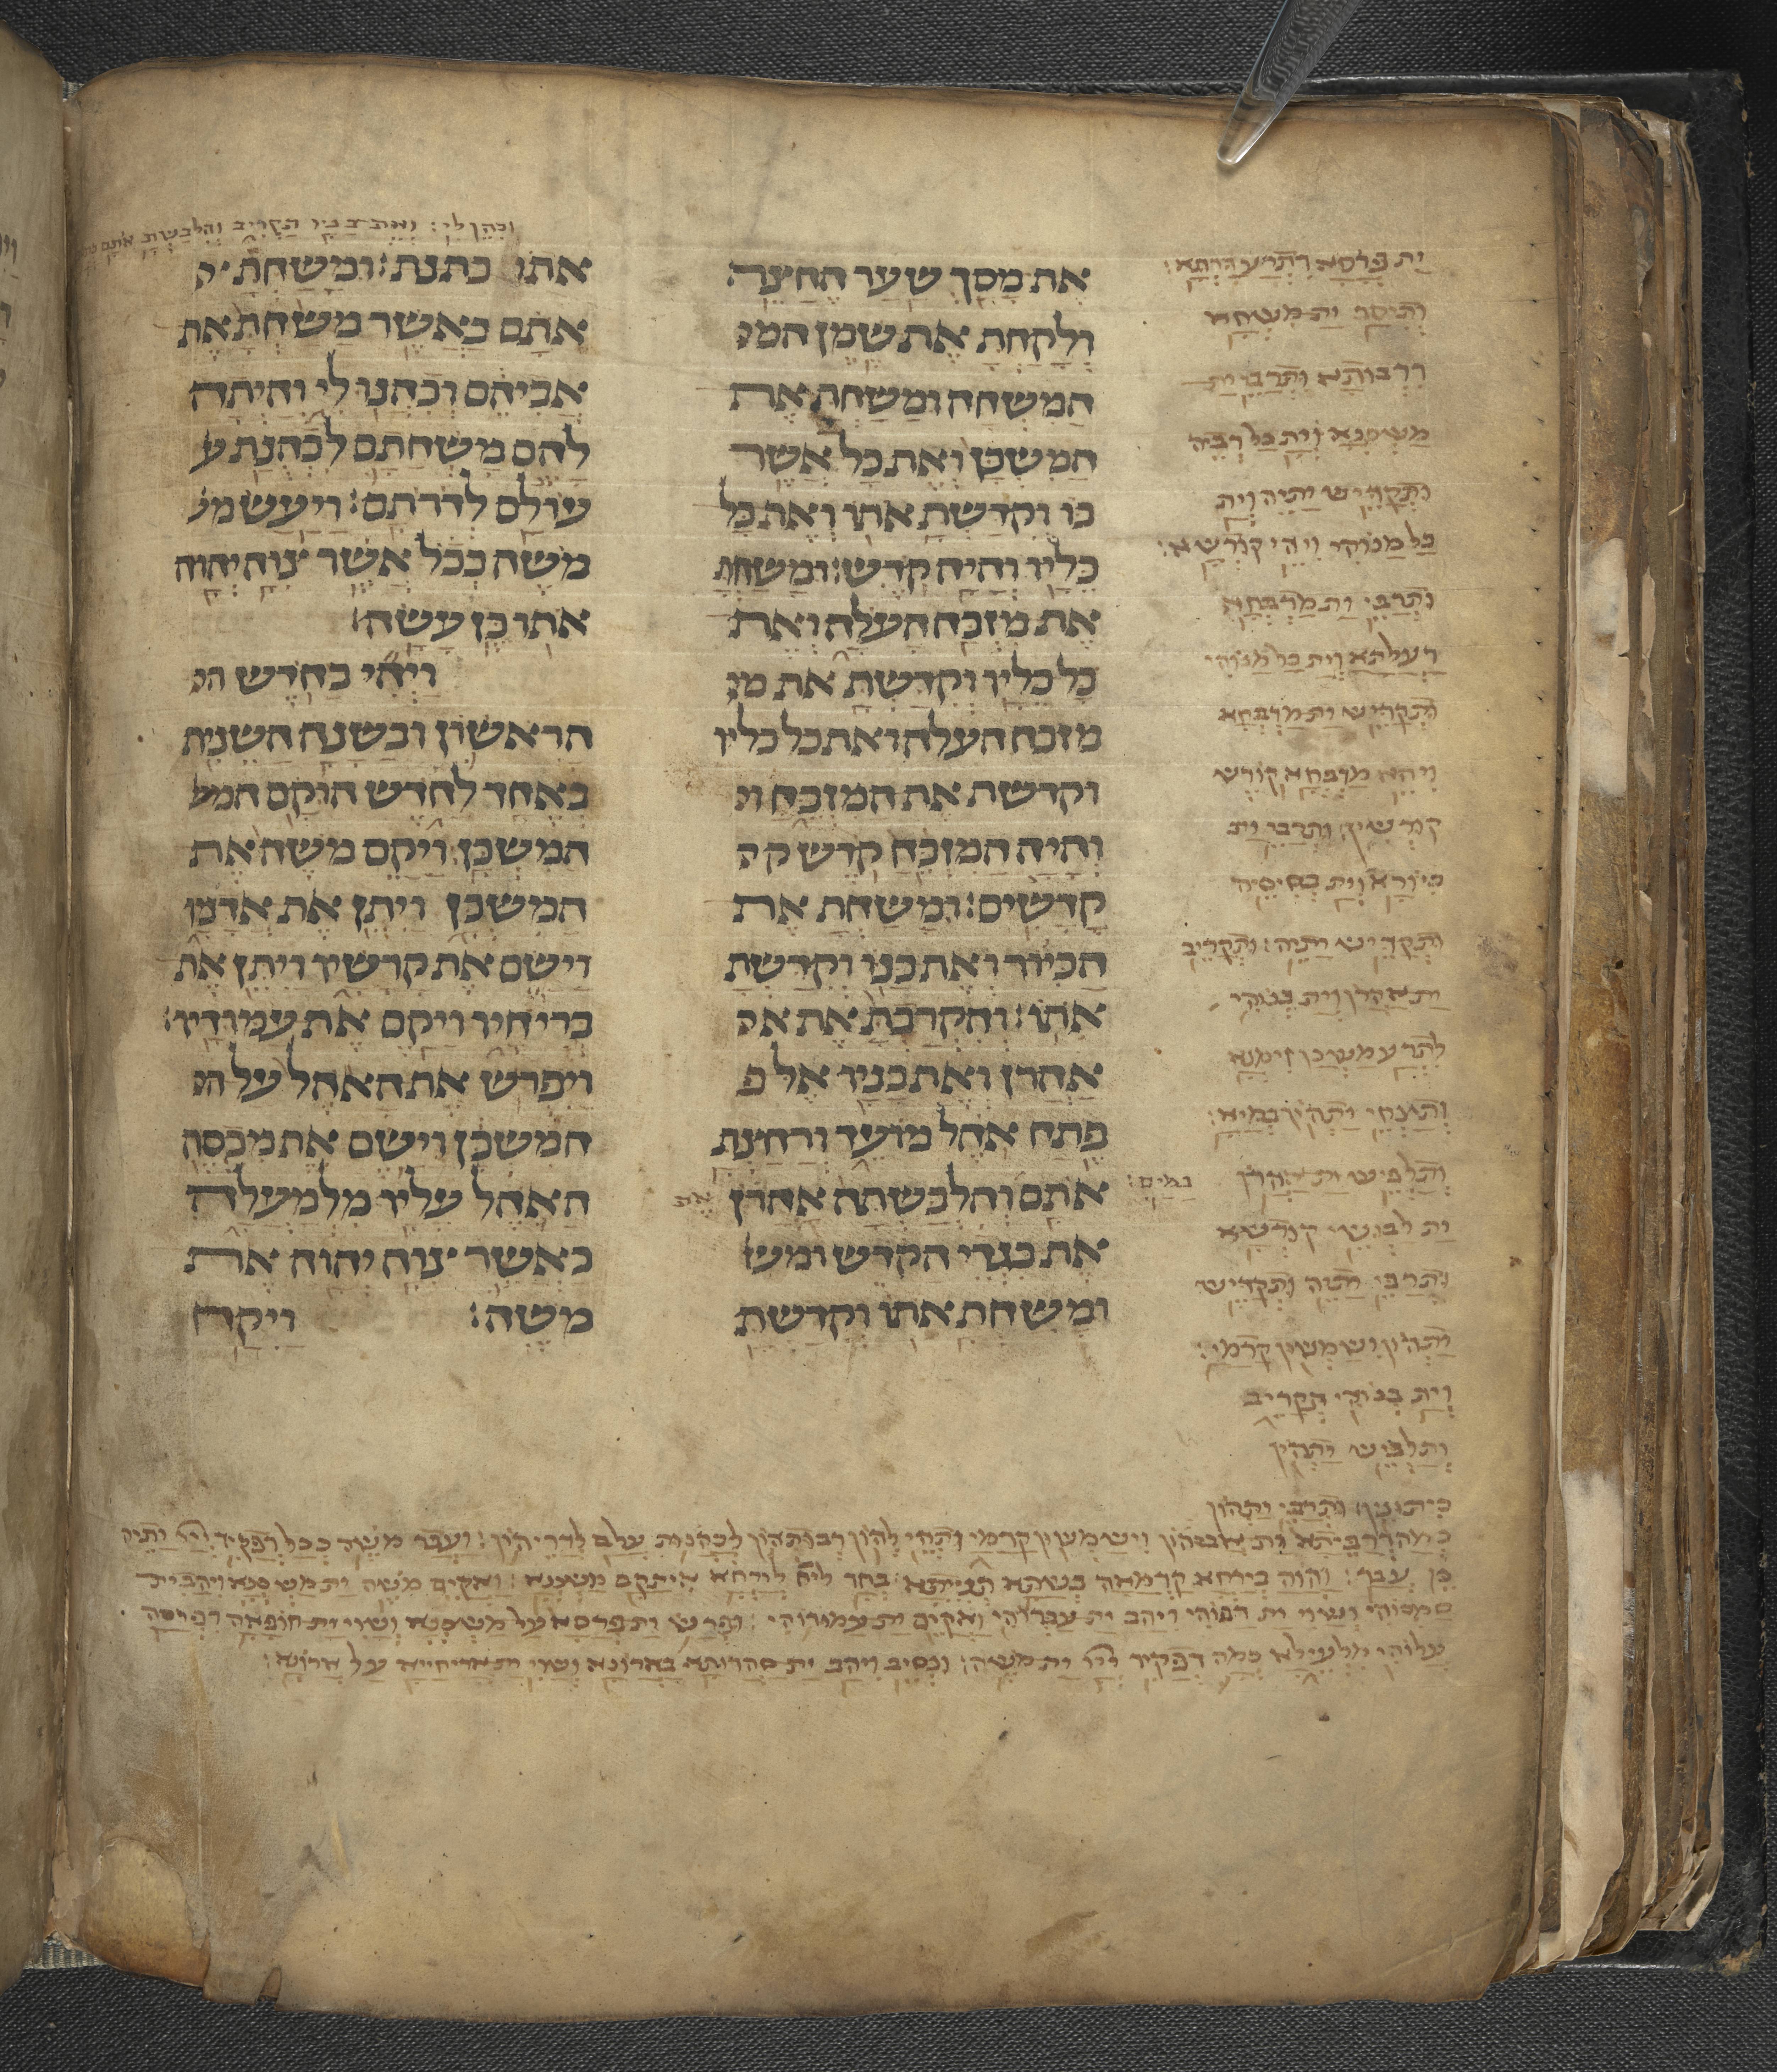 וכהן לי: ואת בניו תקריב והלבשת אתם
את מסך שער החצר
ולקחת את שמן המ
המשחה ומשחת את
המשכן ואת כל אשר
בו וקדשת אתו ואת כל
כליו והיה קדש: ומשחת
את מזבח העלה ואת
כל כליו וקדשת את מ
מזבח העלה ואת כל כליו
וקדשת את המזבח ו
והיה המזבח קדש ק
קדשים: ומשחת את
הכיור ואת כנו וקדשת
אתו: והקרבת את א
אהרן ואת בניו אל פ
פתח אהל מועד ורחצת
אתם והלבשתה אהרן את
במים:
את בגדי הקדש ומש
ומשחת אתו וקדשת
אתו כתנת: ומשחת
אתם כאשר משחת את
אביהם וכהנו לי והיתה
להם משחתם לכהנת ע
עולם לדרתם: ויעש מ
משה ככל אשר צוה יהוה
אתו כן עשה:
ויהי בחדש ה
הראשון ובשנה השנית
באחד לחדש הוקם המ
המשכן: ויקם משה את
המשכן ויתן את אדניו
וישם את קרשיו ויתן את
בריחיו ויקם את עמודיו:
ויפרש את האהל על ה
המשכן וישם את מכסה
האהל עליו מלמעלה
כאשר צוה יהוה את
משה: ויקח
ית פרסא דתרע דרתא:
ותיסב ית מישחא
דרבותא ותרבי ית
משכנא וית כל דביה
ותקדיש יתיה וית
כל מנוהי ויהי קודשא:
ותרבי ית מדבחא
דעלתא וית כל מנוהי
ותקדיש ית מדבחא
ויהא מדבחא קודש
קודשין: ותרבי ית
כיורא וית בסיסיה
ותקדיש יתיה: ותקריב
ית אהרן וית בנוהי
לתרע משכן זימנא
ותסחי יתהון במיא:
ותלביש ית אהרן
ית לבושי קודשא
ותרבי יתיה ותקדיש
יתהון וישמשון קדמי:
וית בנוהי תקריב
ותלביש יתהון
כיתונין: ותרבי יתהון
כמה דרביתא ית אבוהון וישמשון קדמי ותהי להון רבותהון לכהנות עלם לדריהון: ועבד משה ככל דפקיד ייי יתיה
כן עבד: והוה בירחא קדמאה בשתא תנייתא בחד לירחא איתקם משכנא: ואקים משה ית משכנא ויהב ית
סמכוהי ושוי ית דפוהי ויהב ית עברוהי ואקים ית עמודוהי: ופרש ית פרסא על משכנא ושוי ית חופאה דפרסה
עלוהי מלעילא כמה דפקיד ייי ית משה: ונסיב ויהב ית סהדותא בארונא ושוי ית אריחייא על ארונא: